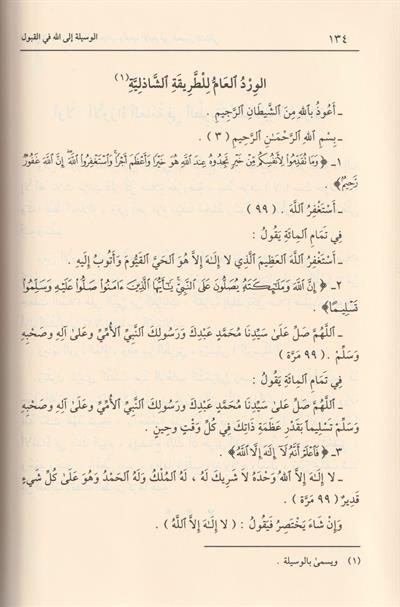 ١٣٤ الوسيلة إلى الله في القبول
الوِرْدُ العَامُّ لِلْطَّرِيقَةِ الشَّاذِليَّةِ (١)
ـ أَعُوذُ بِاللهِ مِنَ الشَّيْطَانِ الرَّجِيمِ .
ـ بِسْمِ اللهِ الرَّحْمَـٰنِ الرَّحِيمِ ( ٣ ) .
١ـ ﴿ وَمَا نُقَدِّمُوا لِأَنفُسِكُم مِّنْ خَيْرٍ تَجِدُوهُ عِندَ اللَّهِ هُوَ خَيْرًا وَأَعْظَمَ أَجْرًا وَاسْتَغْفِرُوا اللَّهَ إِنَّ اللَّهَ غَفُورٌ
رَّحِيمٌ ﴾ .
ـ أَسْتَغْفِرُ اللَّهَ . ( ٩٩ )
فِي تَمَامِ المِائَةِ يَقُولُ :
ـ أَسْتَغْفِرُ اللَّهَ العَظِيمَ الَّذِي لا إِلَـٰهَ إِلاَّ هُوَ الحَيَّ القَيُّومَ وَأَتُوبُ إِلَيهِ .
٢ـ ﴿ إِنَّ اللَّهَ وَمَلَائِكَتَهُ يُصَلُّونَ عَلَى النَّبِيِّ يَا أَيُّهَا الَّذِينَ ءَامَنُوا صَلُّوا عَلَيْهِ وَسَلِّمُوا
تَسْلِيمًا ﴾ .
ـ اللَّهُمَّ صَلِّ عَلَىٰ سَيِّدِنَا مُحَمَّدٍ عَبْدِكَ وَرَسُولِكَ النَّبِيِّ الأُمِّيِّ وعَلَىٰ آلِهِ وصَحْبِهِ
وَسَلِّمْ . ( ٩٩ مَرَّة )
فِي تَمَامِ المِائَةِ يَقُولُ :
ـ اللَّهُمَّ صَلِّ عَلَىٰ سَيِّدِنَا مُحَمَّدٍ عَبْدِكَ وَرَسُولِكَ النَّبِيِّ الأُمِّيِّ وعَلَىٰ آلِهِ وَصَحْبِهِ
وَسَلِّمْ تَسْلِيماً بَقَدْرِ عَظَمَةِ ذَاتِكَ فِي كُلِّ وَقْتٍ وحِينٍ .
٣ـ ﴿ فَاعْلَمْ أَنَّهُ لَا إِلَهَ إِلَّا اللَّهُ ﴾ .
ـ لا إِلَـٰهَ إِلاَّ اللهُ وَحْدَهُ لا شَرِيكَ لَهُ ، لَهُ المُلْكُ وَلَهُ الحَمْدُ وَهُوَ عَلَىٰ كُلِّ شَيءٍ
قَدِيرٌ ( ٩٩ مَرَّة ) .
وَإِنْ شَاءَ يَخْتَصِرُ فَيَقُولُ : ( لا إِلَـٰهَ إِلاَّ اللَّهُ ) .
(١) ويسمىٰ بالوسيلة .